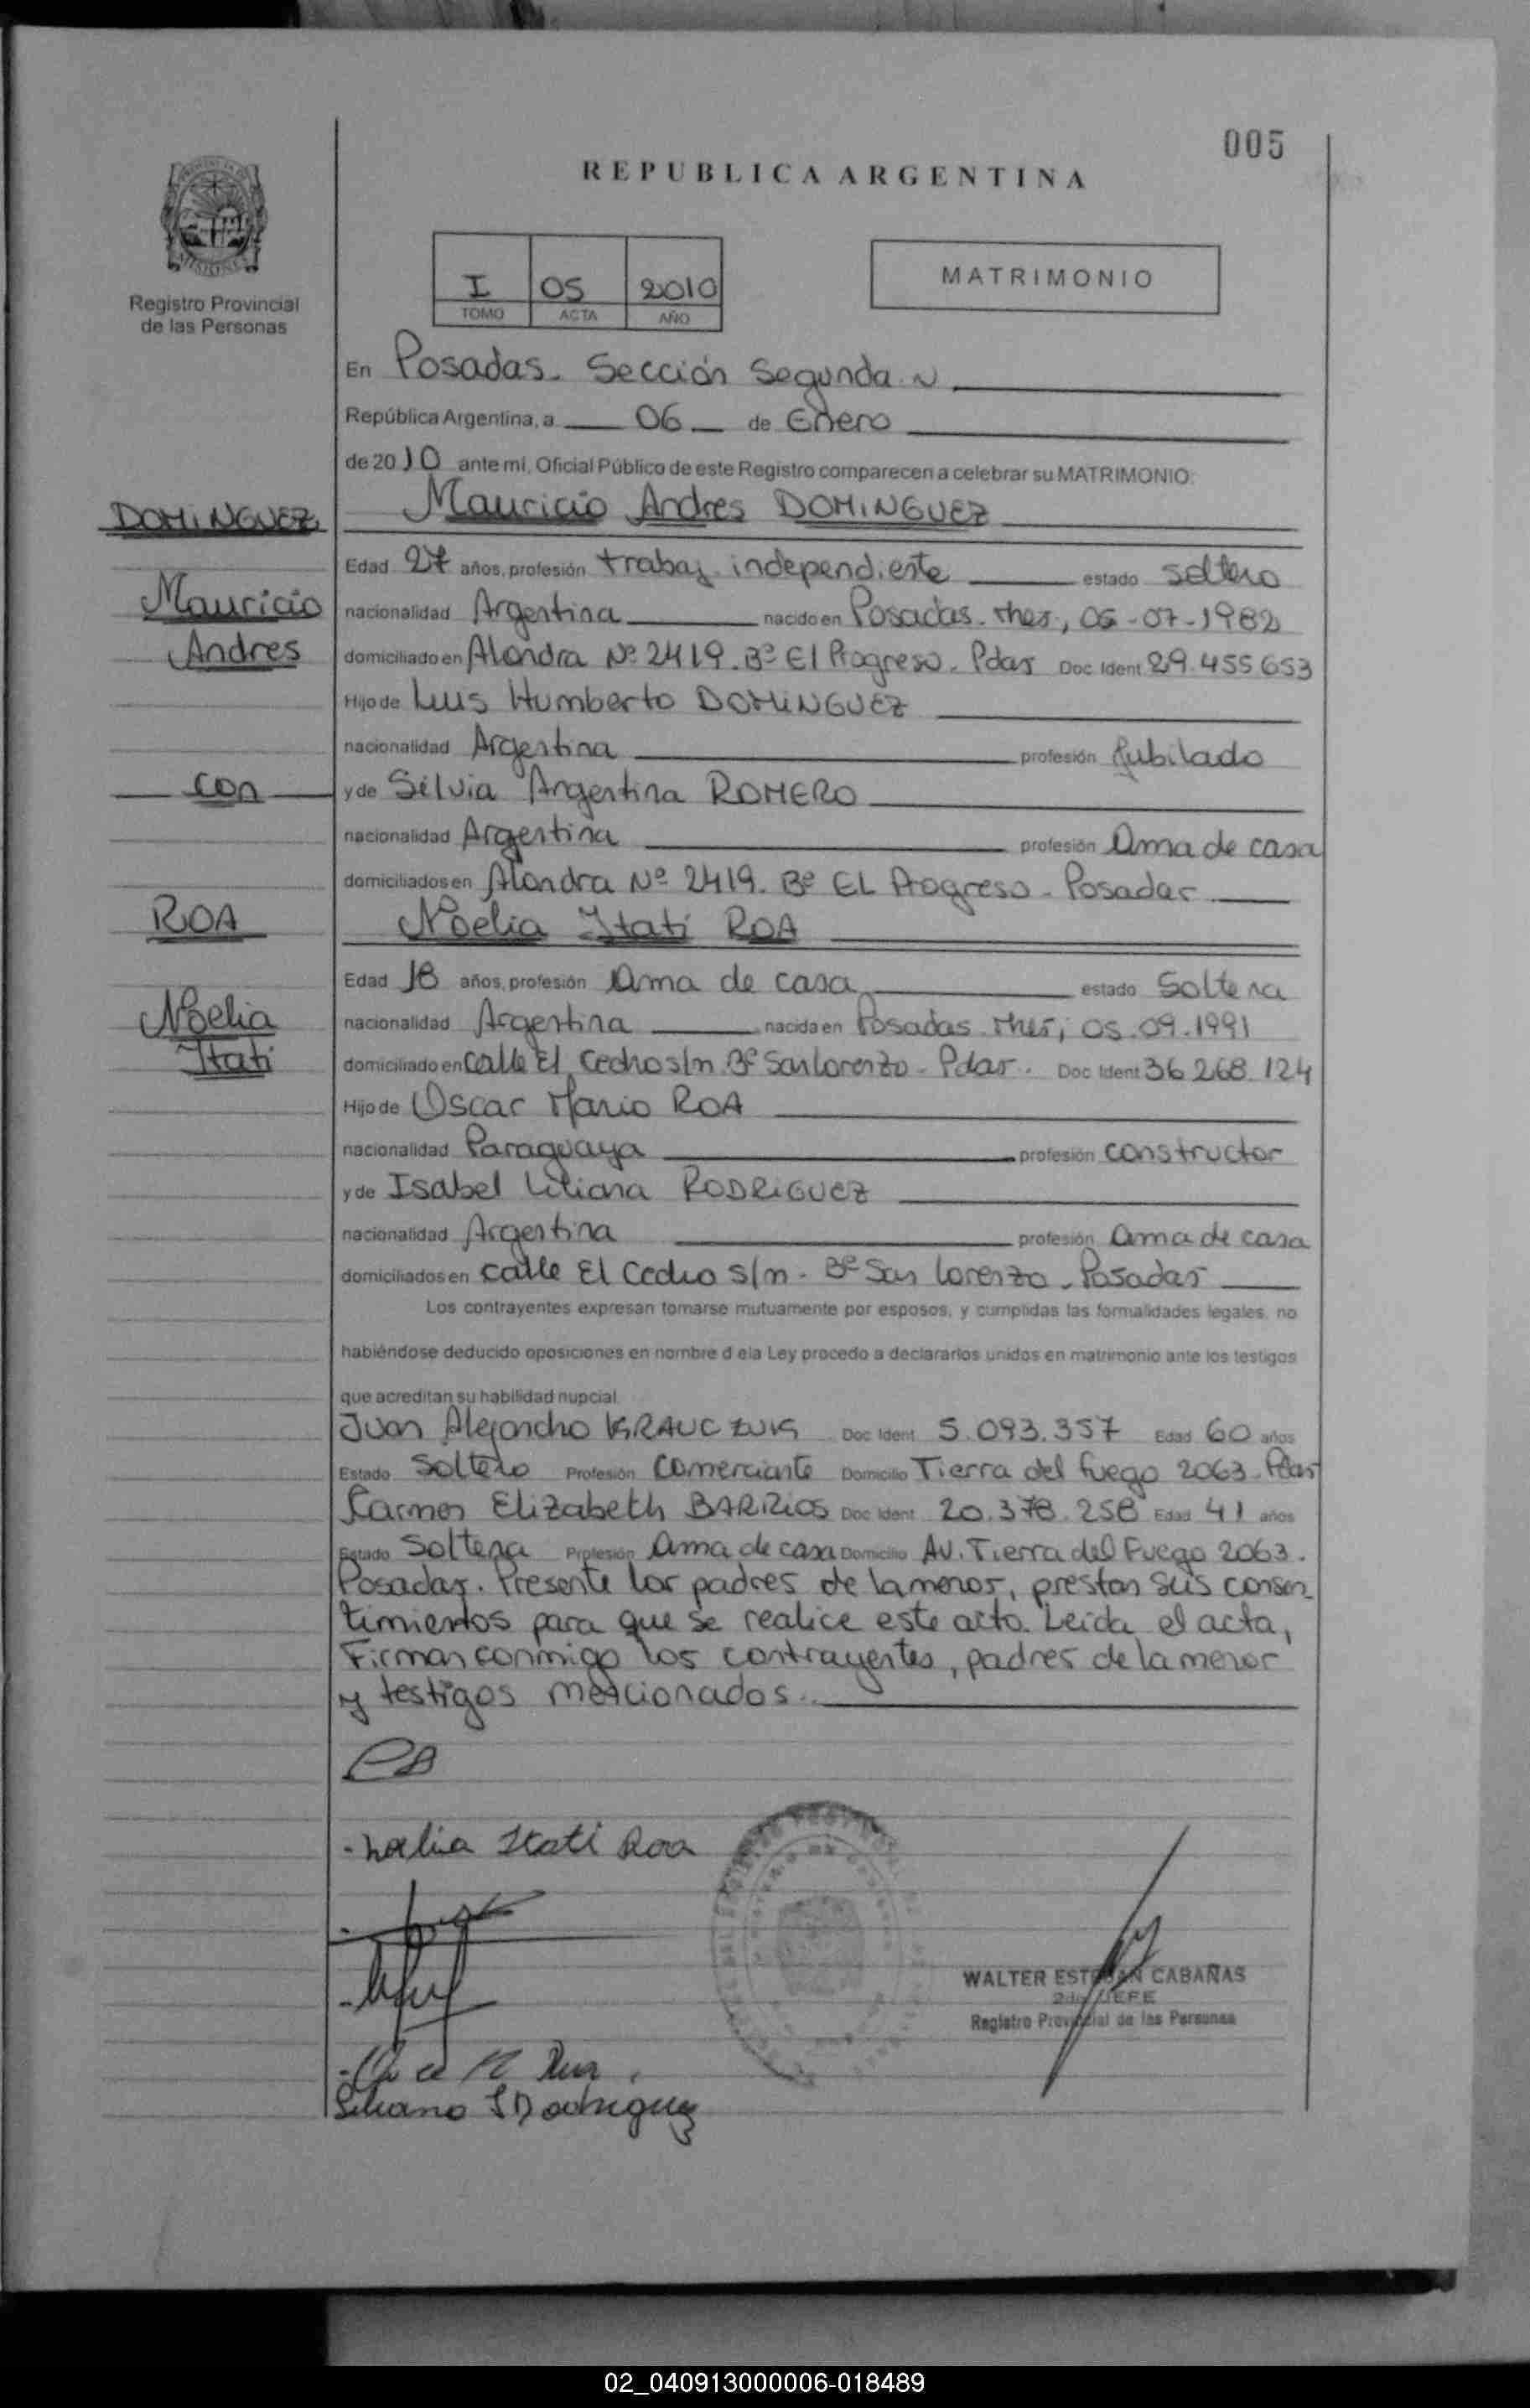 005
REPUBLICA ARGENTINA
MISIONES
Registro Provincial
de las Personas
I 05 2010
TOMO ACTA AÑO
MATRIMONIO
En Posadas. Sección Segunda.
República Argentina, a 06 de Enero
de 2010 ante mi, Oficial Público de este Registro comparecen a celebrar su MATRIMONIO:
DOMINGUEZ
Mauricio Andres DOMINGUEZ
Edad 27 años, profesión trabaj. independiente estado soltero
Mauricio
nacionalidad Argentina nacido en Posadas. Mnes, 06-07-1982
Andres
domiciliado en Alondra Nº 2419. Bº El Progreso. Pdas Doc Ident 29.455653
Hijo de Luis Humberto DOMINGUEZ
nacionalidad Argentina profesión Jubilado
con
y de Silvia Argentina ROMERO
nacionalidad Argentina profesión Ama de casa
domiciliados en Alondra Nº 2419. Bº EL Progreso - Posadas
ROA
Noelia Itatí ROA
Edad 18 años, profesión Ama de casa estado Soltera
Noelia
nacionalidad Argentina nacida en Posadas Mnes, 05.09.1991
Itatí
domiciliado en calle El Cedro s/n Bº San Lorenzo - Pdas. Doc Ident 36 268.124
Hijo de Oscar Mario ROA
nacionalidad Paraguaya profesión constructor
y de Isabel Liliana RODRIGUEZ
nacionalidad Argentina profesión ama de casa
domiciliados en calle El Cedro s/n - Bº San Lorenzo - Posadas
Los contrayentes expresan tomarse mutuamente por esposos, y cumplidas las formalidades legales, no
habiéndose deducido oposiciones en nombre d ela Ley procedo a declararlos unidos en matrimonio ante los testigos
que acreditan su habilidad nupcial
Juan Alejandro KRAUCZUK Doc Ident 5.093.357 Edad 60 años
Estado Soltero Profesión Comerciante Domicilio Tierra del Fuego 2063. Pdas
Carmen Elizabeth BARRIOS Doc Ident 20.378.258 Edad 41 años
Estado Soltera Profesión Ama de casa Domicilio Av. Tierra del Fuego 2063.
Posadas. Presente los padres de la menor, prestan sus consen-
timientos para que se realice este acto. Leída el acta,
Firman conmigo los contrayentes, padres de la menor
y testigos mencionados..
- Noelia Itati Roa
WALTER ESTEBAN CABAÑAS
2do JEFE
Registro Provincial de las Personas
Liliana I Rodriguez
02_040913000006-018489